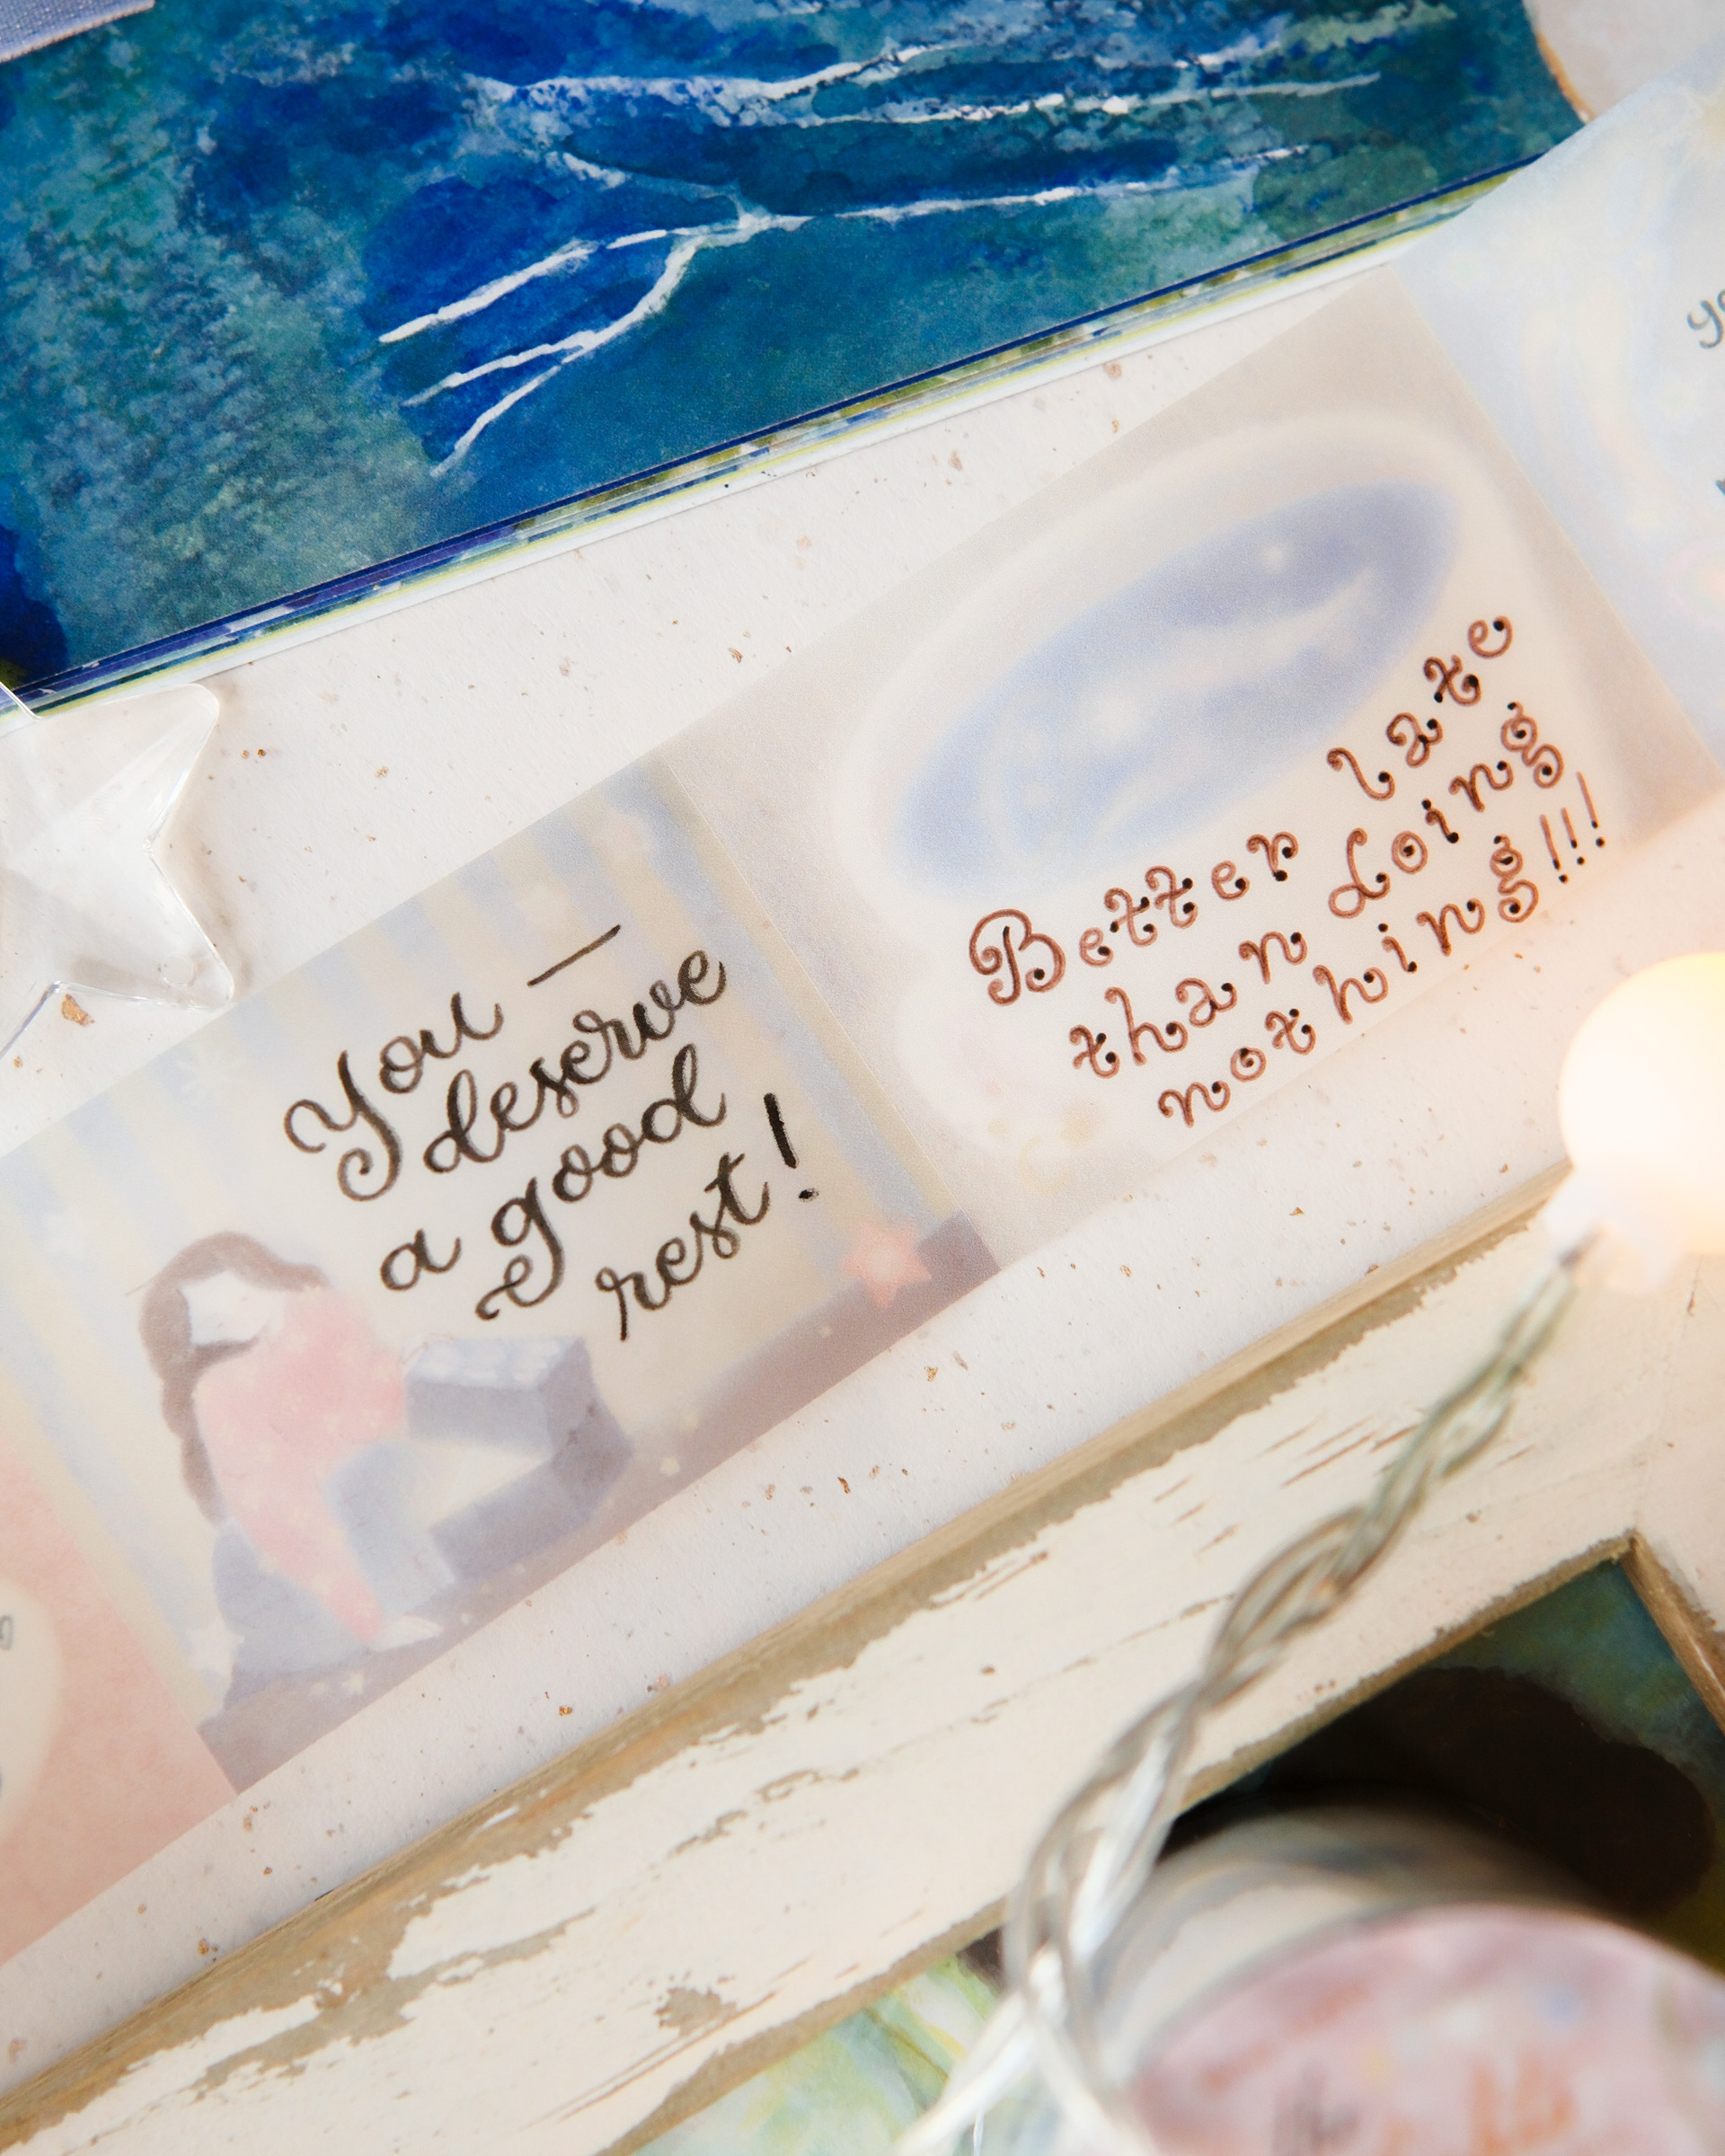 You —
deserve
a good
rest!
Better late
than doing
nothing!!!